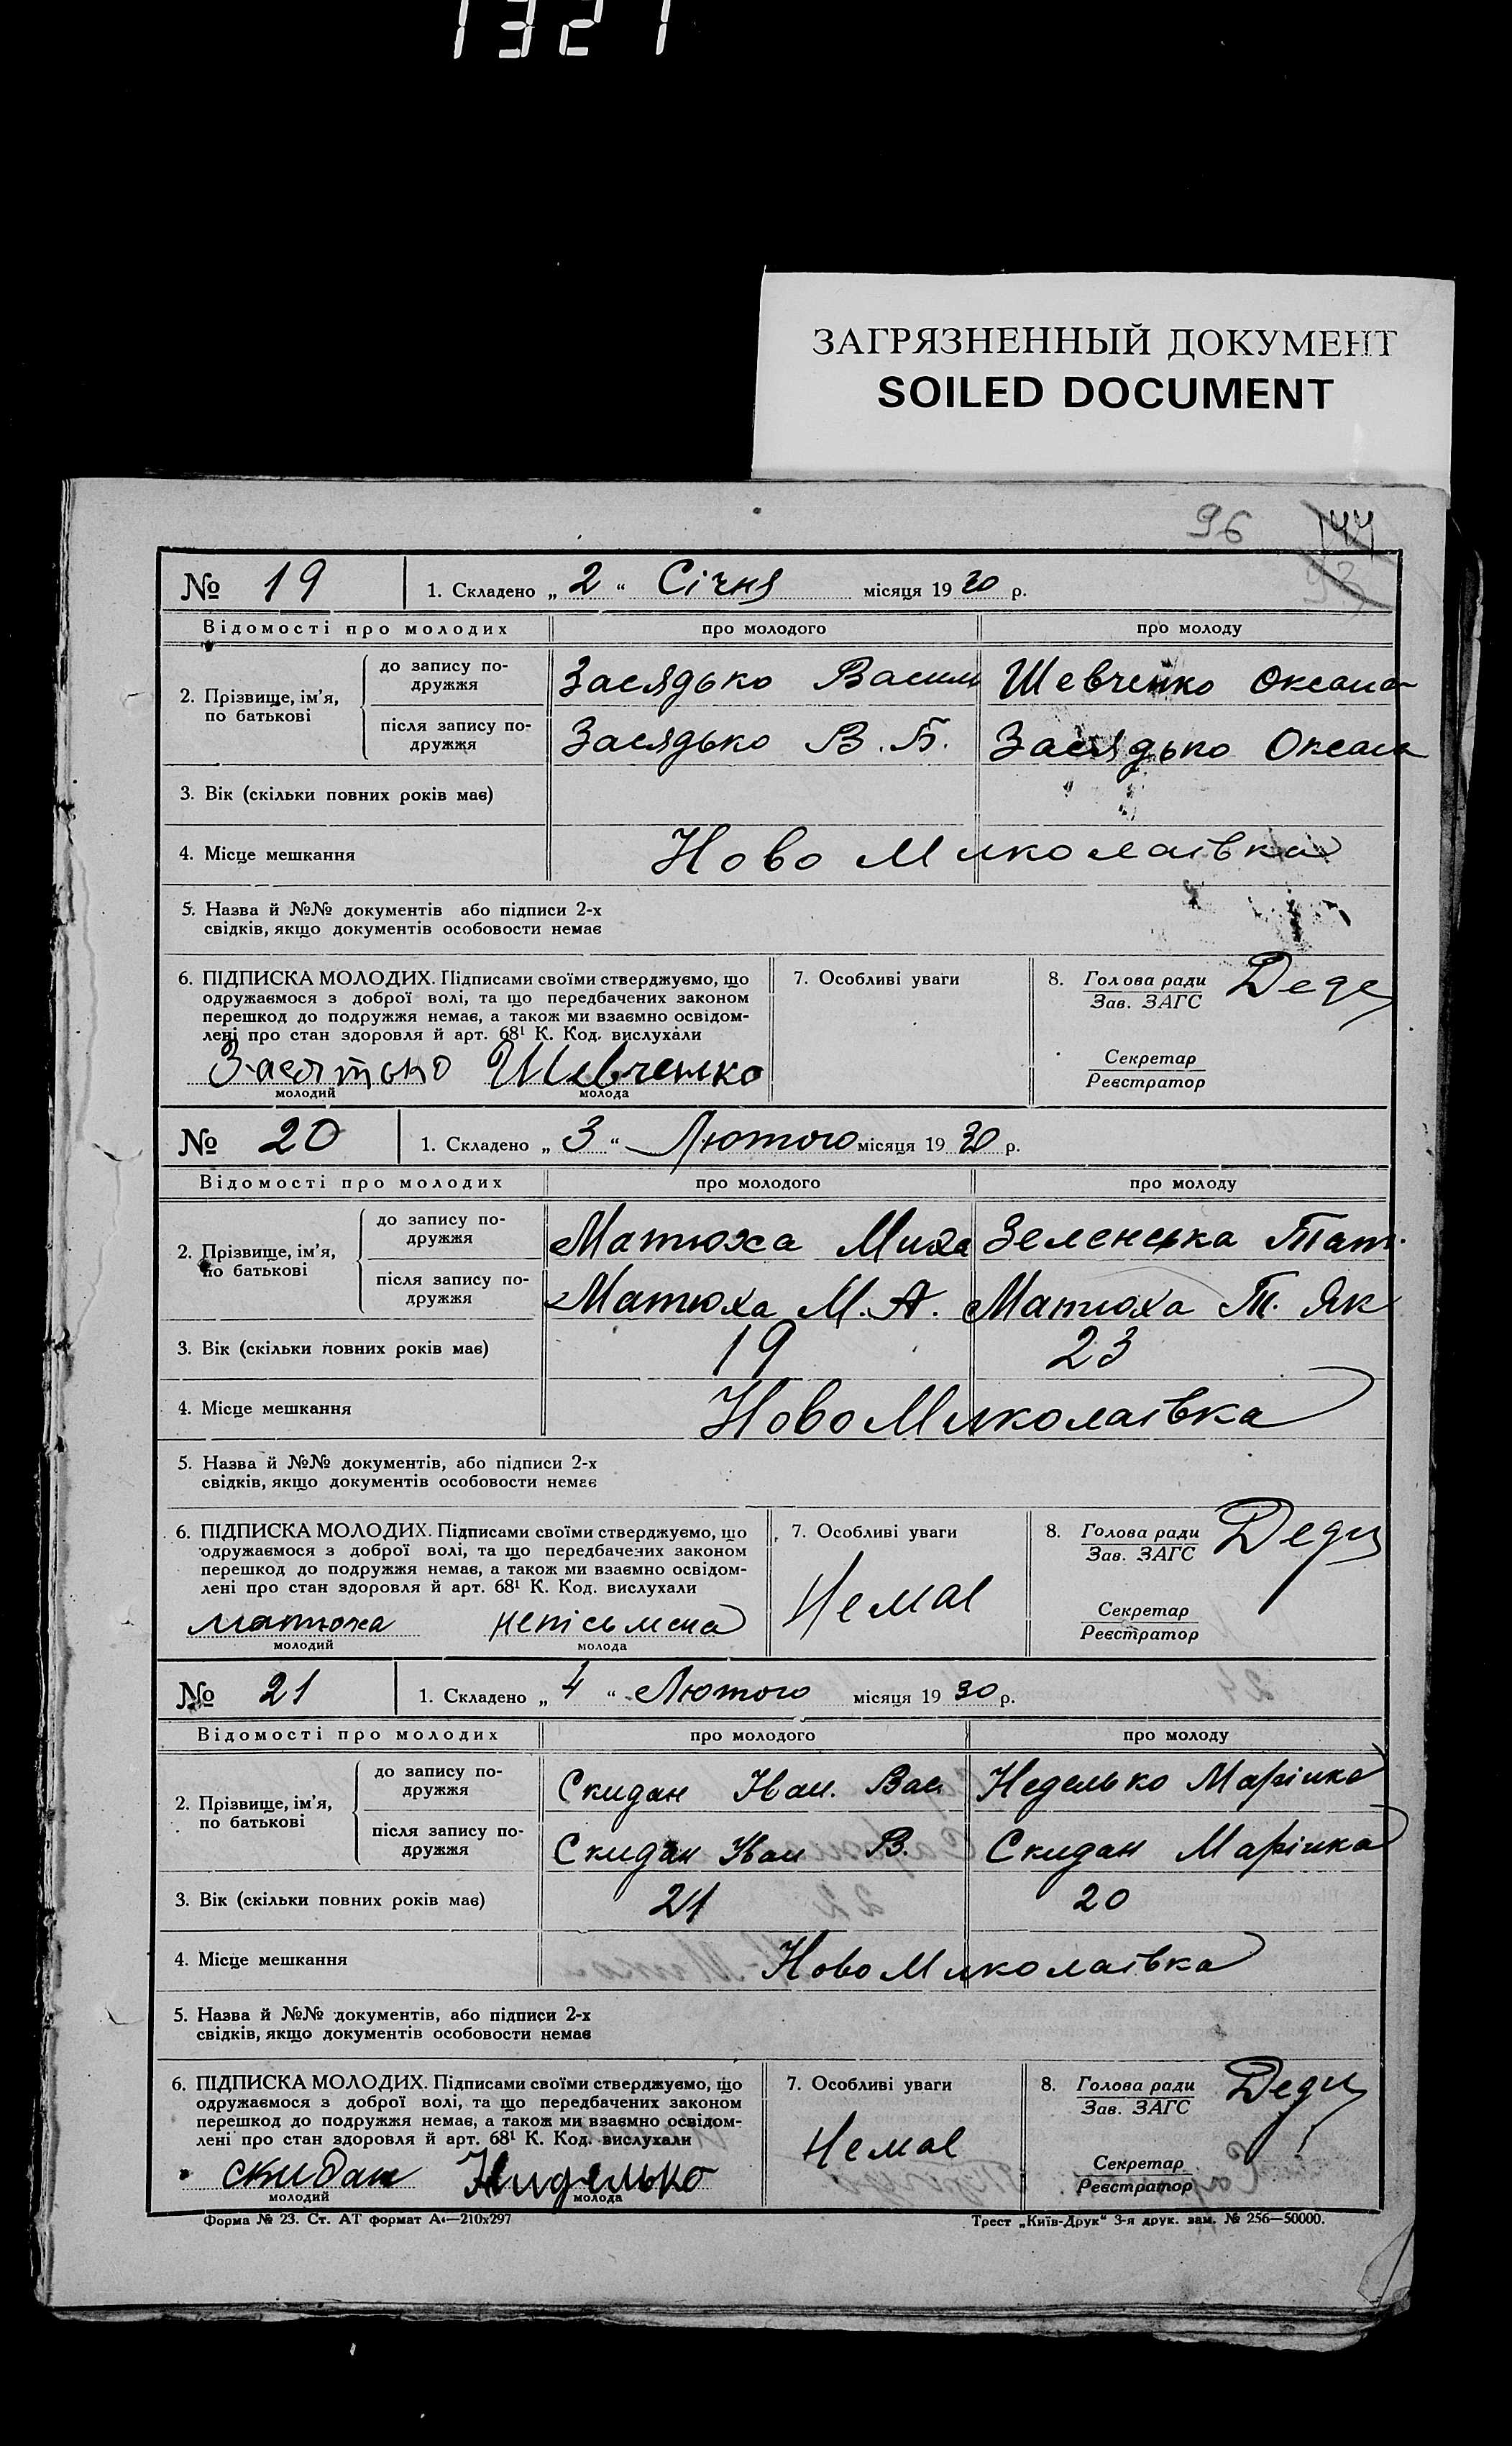 1321
ЗАГРЯЗНЕННЫЙ ДОКУМЕНТ
SOILED DOCUMENT
96
№ 19 1. Складено „ 2 “ Січня місяця 19 30 р.
Відомості про молодих про молодого про молоду
2. Прізвище, ім’я, по батькові
до запису подружжя Заслядько Васил Шевченко Оксана
після запису подружжя Заслядько В. Б. Заслядько Оксана
3. Вік (скільки повних років має)
4. Місце мешкання Ново Миколаівка
5. Назва й №№ документів або підписи 2-х
свідків, якщо документів особовости немає
6. ПІДПИСКА МОЛОДИХ. Підписами своїми стверджуємо, що
одружаємося з доброї волі, та що передбачених законом
перешкод до подружжя немає, а також ми взаємно освідом-
лені про стан здоровля й арт. 68¹ К. Код. вислухали
7. Особливі уваги
8. Голова ради
Зав. ЗАГС
Секретар
Реєстратор
Шевченко
молодий молода
№ 20 1. Складено „ 3 “ Лютого місяця 19 30 р.
Відомості про молодих про молодого про молоду
2. Прізвище, ім’я, по батькові
до запису подружжя Матюха Миха Зеленська Тат.
після запису подружжя Матюха М. А. Матюха Т. Як
3. Вік (скільки повних років має) 19 23
4. Місце мешкання Ново Миколаівка
5. Назва й №№ документів, або підписи 2-х
свідків, якщо документів особовости немає
6. ПІДПИСКА МОЛОДИХ. Підписами своїми стверджуємо, що
одружаємося з доброї волі, та що передбачених законом
перешкод до подружжя немає, а також ми взаємно освідом-
лені про стан здоровля й арт. 68¹ К. Код. вислухали
7. Особливі уваги
Немає
8. Голова ради
Зав. ЗАГС
Секретар
Реєстратор
матюха непісьмена
молодий молода
№ 21 1. Складено „ 4 “ Лютого місяця 19 30 р.
Відомості про молодих про молодого про молоду
2. Прізвище, ім’я, по батькові
до запису подружжя Скидан Иван. Вас. Неделько Марінка
після запису подружжя Скидан Иван В. Скидан Марінка
3. Вік (скільки повних років має) 21 20
4. Місце мешкання Ново Миколаівка
5. Назва й №№ документів, або підписи 2-х
свідків, якщо документів особовости немає
6. ПІДПИСКА МОЛОДИХ. Підписами своїми стверджуємо, що
одружаємося з доброї волі, та що передбачених законом
перешкод до подружжя немає, а також ми взаємно освідом-
лені про стан здоровля й арт. 68¹ К. Код. вислухали
7. Особливі уваги
Немає
8. Голова ради
Зав. ЗАГС
Секретар
Реєстратор
скидан Ниделько
молодий молода
Форма № 23. Ст. АТ формат А4—210x297
Трест „Київ-Друк“ 3-я друк. зам. № 256—50000.